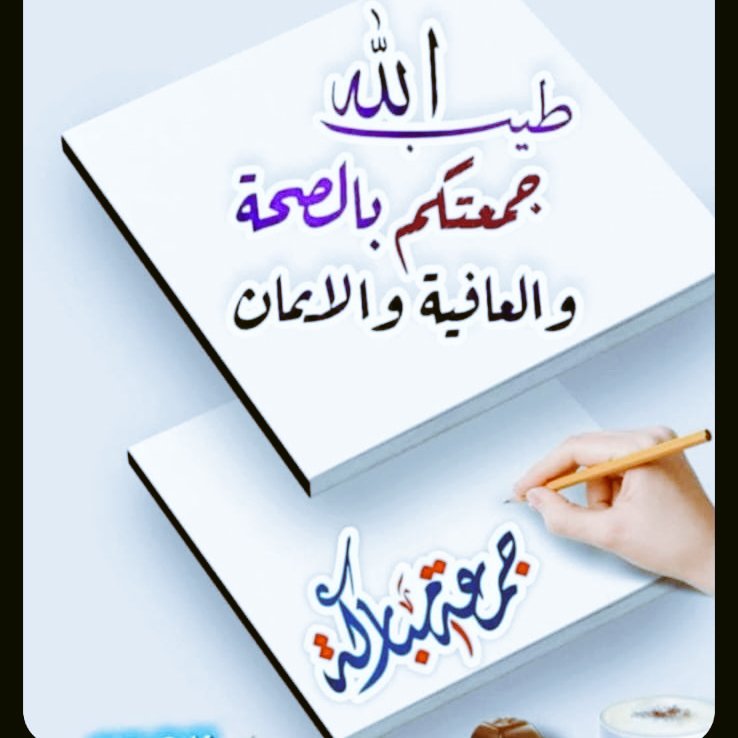 طيب الله
جمعتكم بالصحة
والعافية والايمان
جمعة مباركة